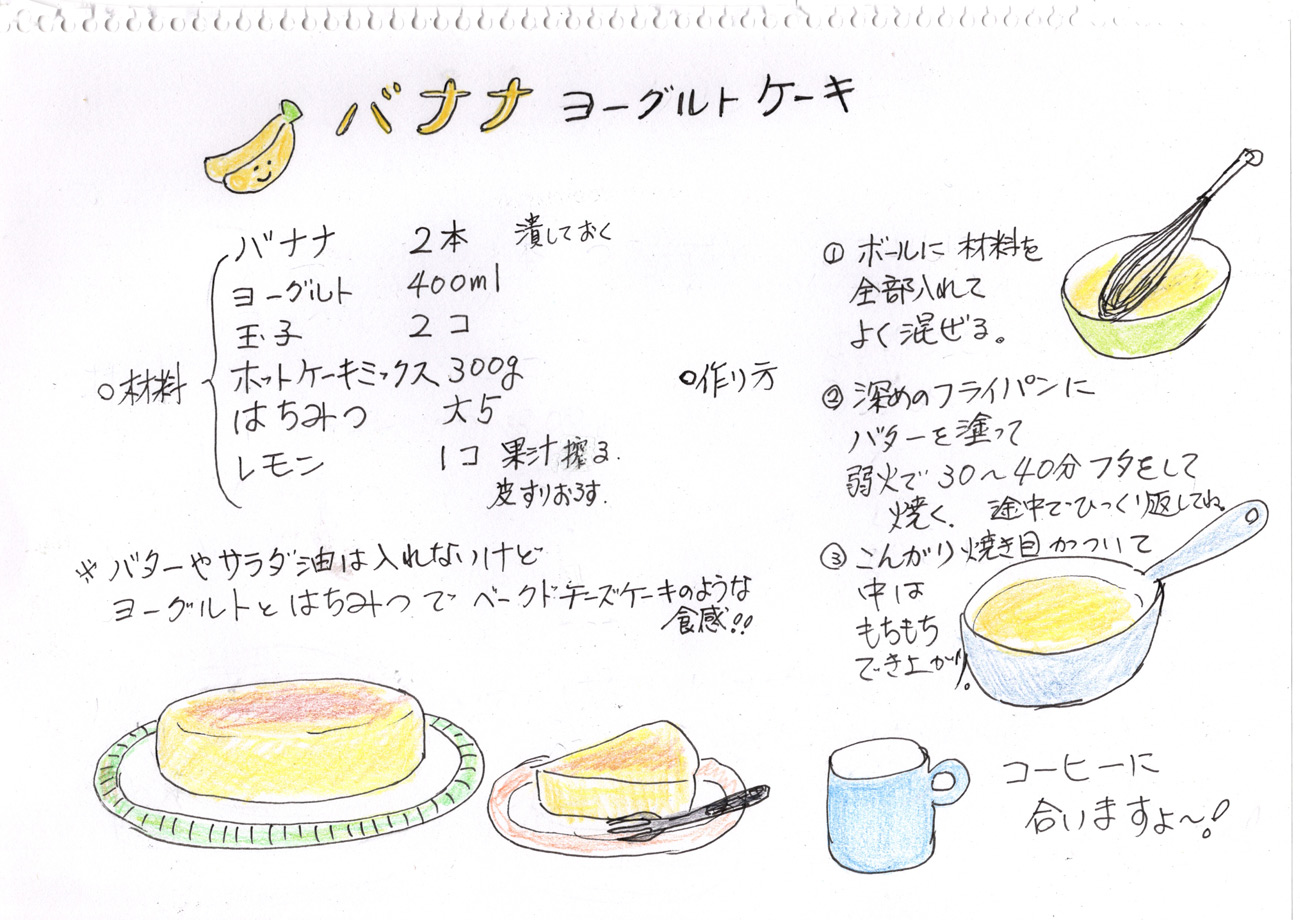 バナナ ヨーグルト ケーキ
○材料
バナナ 2本 潰しておく
ヨーグルト 400ml
玉子 2コ
ホットケーキミックス 300g
はちみつ 大5
レモン 1コ 果汁搾る.
皮すりおろす.
※バターやサラダ油は入れないけど
ヨーグルトとはちみつで ベークドチーズケーキのような
食感!!
○作り方
① ボールに 材料を
全部入れて
よく混ぜる。
② 深めのフライパンに
バターを塗って
弱火で 30〜40分 フタをして
焼く. 途中でひっくり返してね。
③ こんがり焼き目がついて
中は
もちもち
でき上がり.
コーヒーに
合いますよ〜!